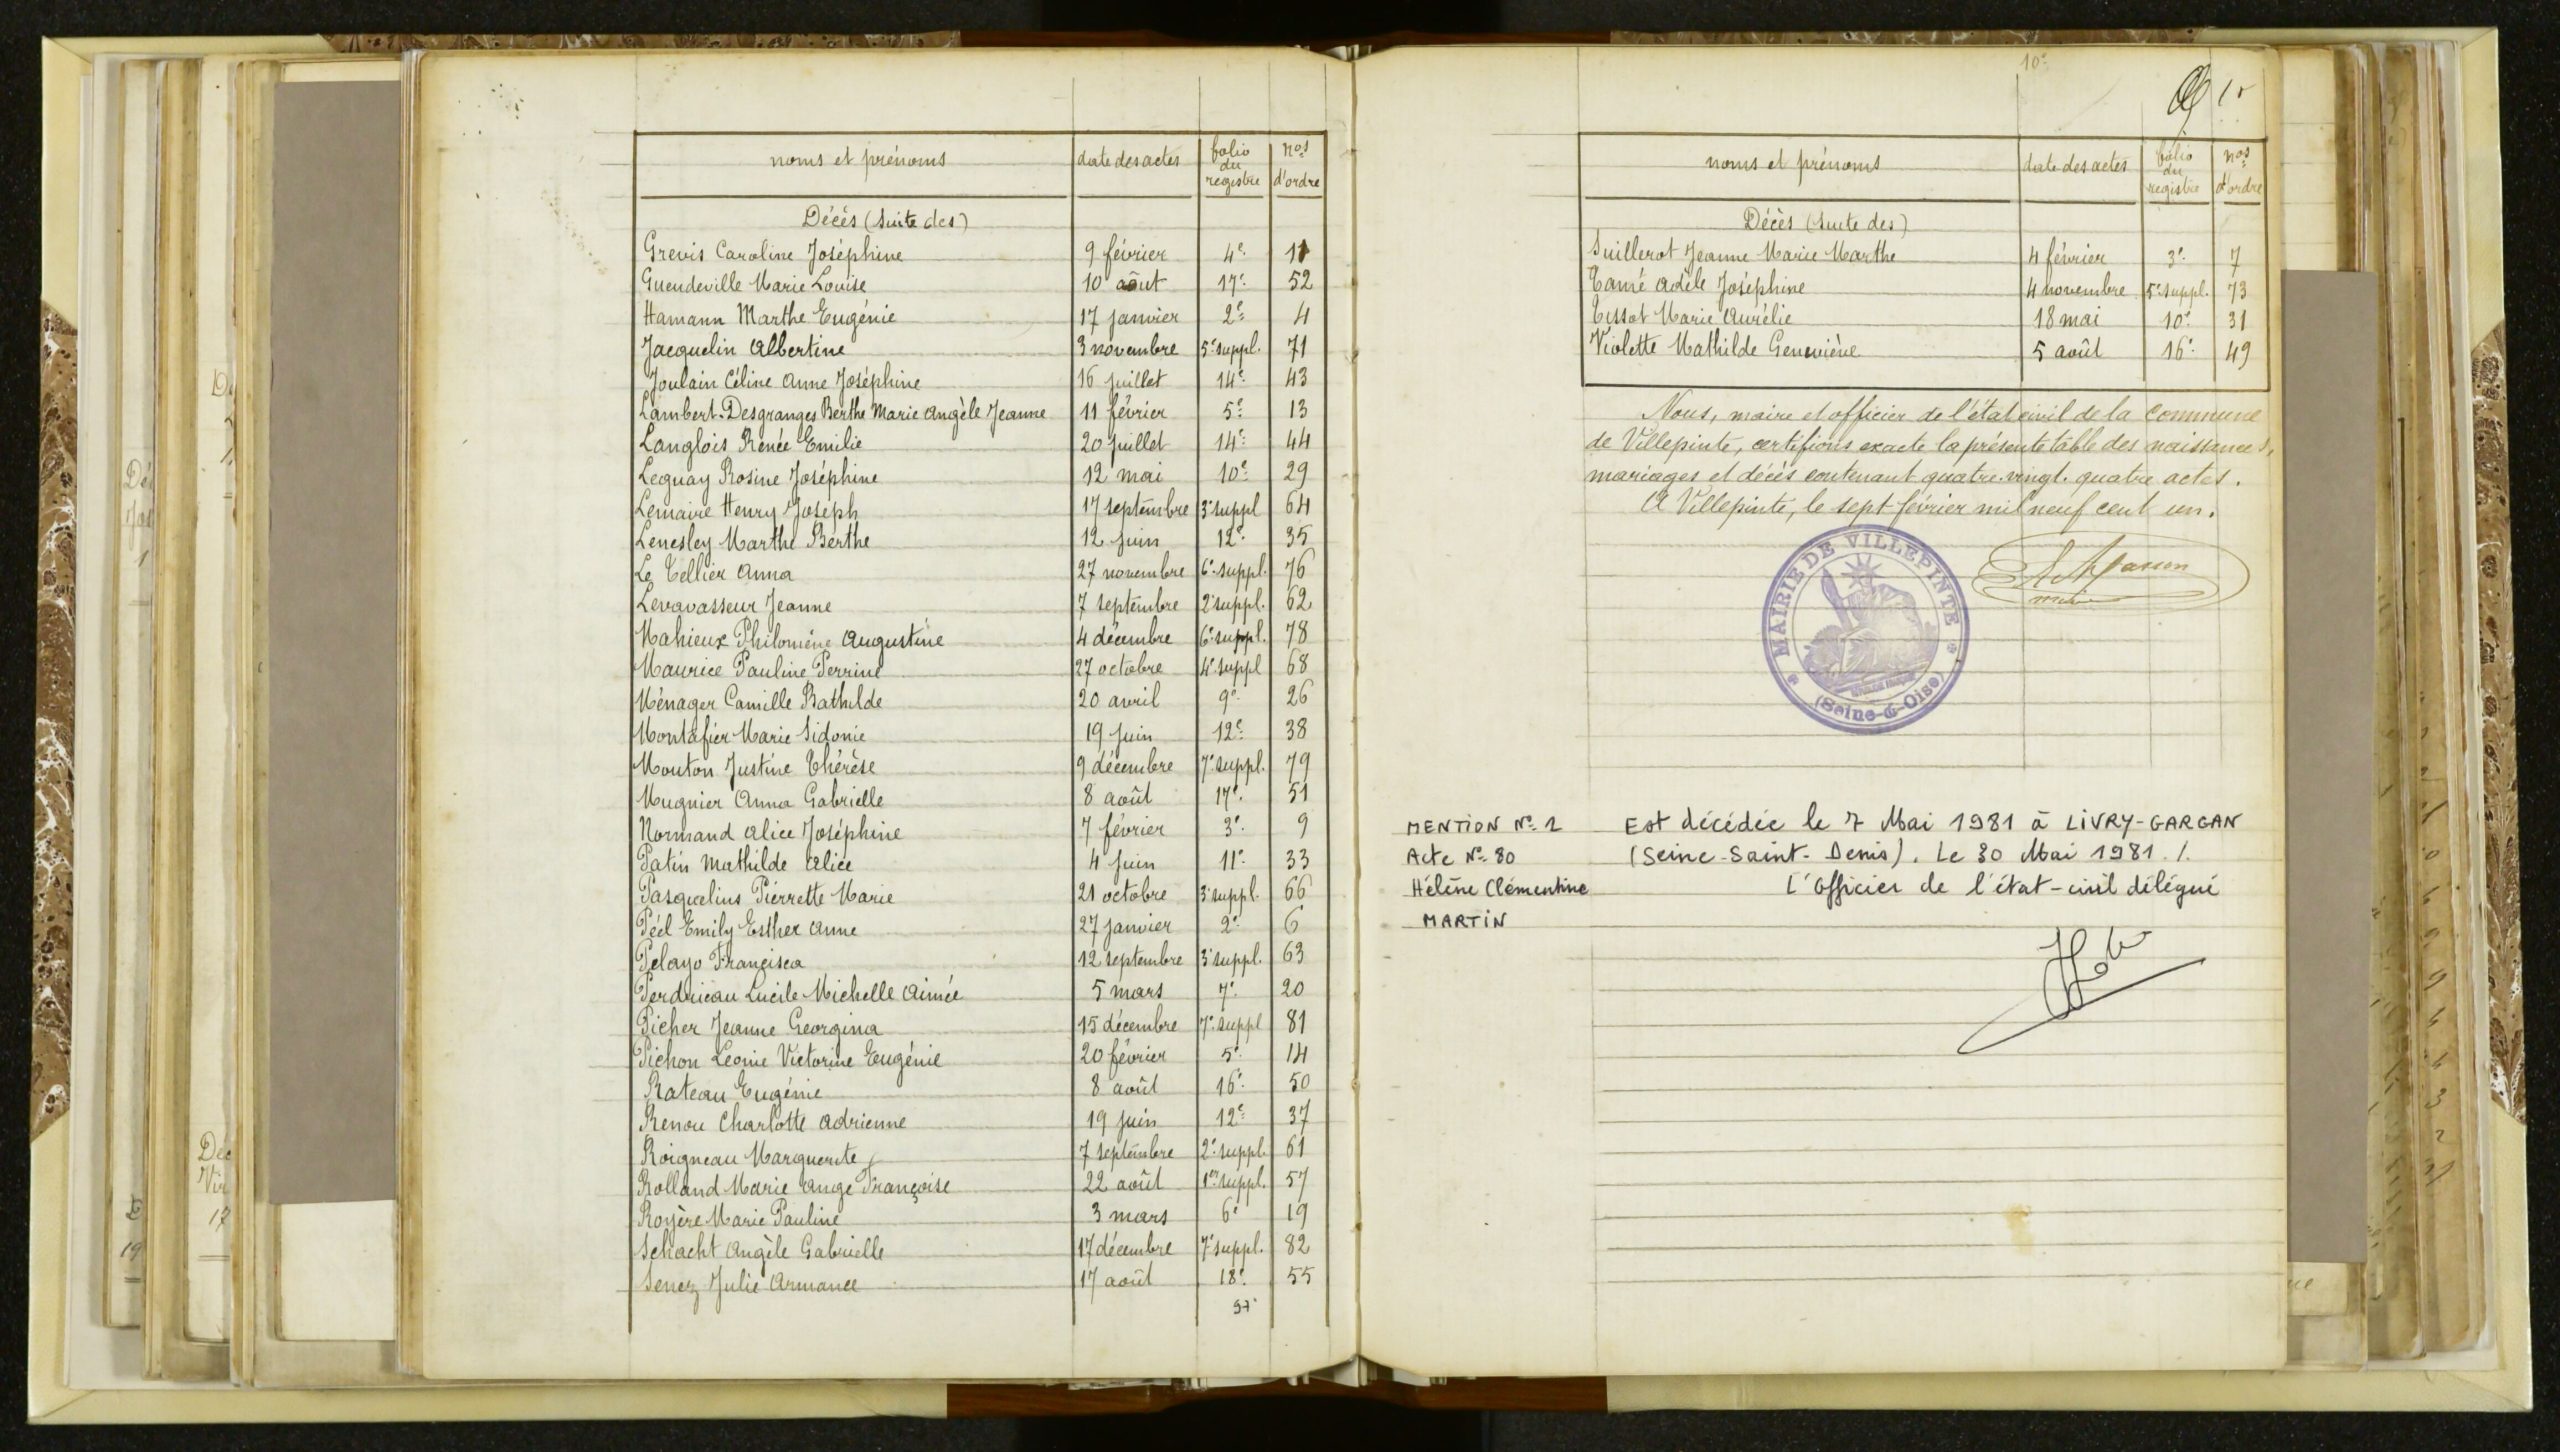 noms et prénoms | date des actes | folio du registre | nos d'ordre
Décès (suite des)
Grevis Caroline Joséphine | 9 février | 4e | 11
Gueudeville Marie Louise | 10 août | 17e | 52
Hamann Marthe Eugénie | 17 janvier | 2e | 4
Jacquelin Albertine | 3 novembre | 5e suppl. | 71
Joulain Céline Anne Joséphine | 16 juillet | 14e | 43
Lambert-Desgranges Berthe Marie Angèle Jeanne | 11 février | 5e | 13
Langlois Renée Emilie | 20 juillet | 14e | 44
Leguay Rosine Joséphine | 12 mai | 10e | 29
Lemaire Henry Joseph | 17 septembre | 3e suppl | 64
Lenesley Marthe Berthe | 12 juin | 12e | 35
Le Tellier Anna | 27 novembre | 6e suppl. | 76
Levavasseur Jeanne | 7 septembre | 2e suppl. | 62
Mahieux Philomène Augustine | 4 décembre | 6e suppl. | 78
Maurice Pauline Perrine | 27 octobre | 4e suppl | 68
Ménager Camille Bathilde | 20 avril | 9e | 26
Montafier Marie Sidonie | 19 juin | 12e | 38
Mouton Justine Thérèse | 9 décembre | 7e suppl. | 79
Mugnier Anna Gabrielle | 8 août | 17e | 51
Normand Alice Joséphine | 7 février | 3e | 9
Patin Mathilde Alice | 4 juin | 11e | 33
Pasquelius Pierrette Marie | 21 octobre | 3e suppl. | 66
Péel Emily Esther Anne | 27 janvier | 2e | 6
Pelayo Francisca | 12 septembre | 3e suppl. | 63
Perdrieau Lucile Michelle Aimée | 5 mars | 7e | 20
Picher Jeanne Georgina | 15 décembre | 7e suppl | 81
Pichon Léonie Victorine Eugénie | 20 février | 5e | 14
Rateau Eugénie | 8 août | 16e | 50
Renou Charlotte Adrienne | 19 juin | 12e | 37
Roigneau Marguerite | 7 septembre | 2e suppl. | 61
Rolland Marie Ange Françoise | 22 août | 1er suppl. | 57
Royère Marie Pauline | 3 mars | 6e | 19
Schacht Angèle Gabrielle | 17 décembre | 7e suppl. | 82
Senez Julie Armance | 17 août | 18e | 55
10e
noms et prénoms | date des actes | folio du registre | nos d'ordre
Décès (suite des)
Suillerot Jeanne Marie Marthe | 4 février | 3e | 7
Tamé Adèle Joséphine | 4 novembre | 5e suppl. | 73
Tissot Marie Aurélie | 18 mai | 10e | 31
Violette Mathilde Geneviève | 5 août | 16e | 49
Nous, maire et officier de l'état civil de la commune
de Villepinte, certifions exacte la présente table des naissances,
mariages et décès contenant quatre-vingt-quatre actes.
A Villepinte, le sept février mil neuf cent un.
MAIRIE DE VILLEPINTE
(Seine-&-Oise)
MENTION No 1 Est décédée le 7 Mai 1981 à LIVRY-GARGAN
Acte No 80 (Seine-Saint-Denis). Le 30 Mai 1981./.
Hélène Clémentine L'Officier de l'état-civil délégué
MARTIN